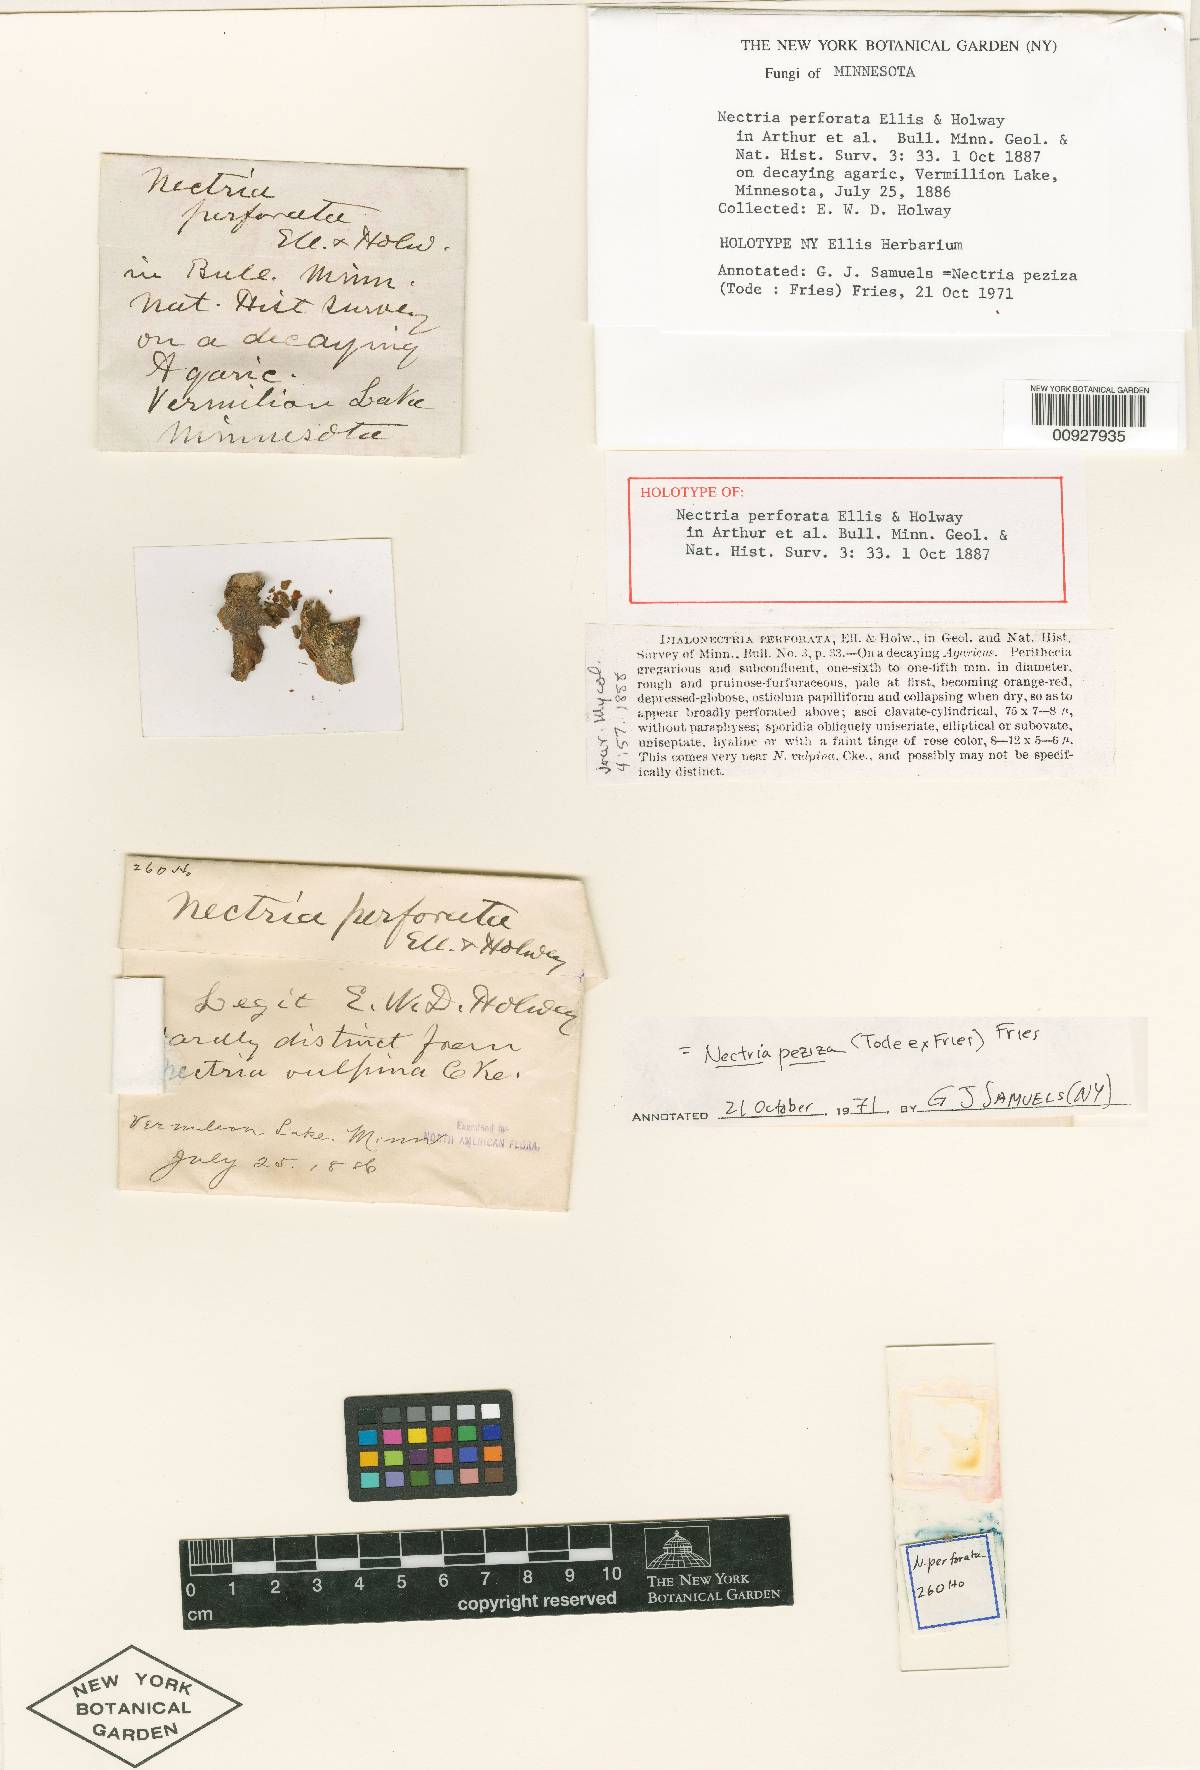 THE NEW YORK BOTANICAL GARDEN (NY)
Fungi of MINNESOTA
Nectria perforata Ellis & Holway
in Arthur et al. Bull. Minn. Geol. &
Nat. Hist. Surv. 3: 33. 1 Oct 1887
on decaying agaric, Vermillion Lake,
Minnesota, July 25, 1886
Collected: E. W. D. Holway
HOLOTYPE NY Ellis Herbarium
Annotated: G. J. Samuels =Nectria peziza
(Tode : Fries) Fries, 21 Oct 1971
NEW YORK BOTANICAL GARDEN
00927935
Nectria
perforata
Ell. & Holw.
in Bull. Minn.
Nat. Hist Survey
on a decaying
Agaric.
Vermilion Lake
Minnesota
HOLOTYPE OF:
Nectria perforata Ellis & Holway
in Arthur et al. Bull. Minn. Geol. &
Nat. Hist. Surv. 3: 33. 1 Oct 1887
Jour. Mycol.
4:57. 1888
DIALONECTRIA PERFORATA, Ell. & Holw., in Geol. and Nat. Hist.
Survey of Minn., Bull. No. 3, p. 33.—On a decaying Agaricus. Perithecia
gregarious and subconfluent, one-sixth to one-fifth mm. in diameter,
rough and pruinose-furfuraceous, pale at first, becoming orange-red,
depressed-globose, ostiolum papilliform and collapsing when dry, so as to
appear broadly perforated above; asci clavate-cylindrical, 75 x 7—8 µ,
without paraphyses; sporidia obliquely uniseriate, elliptical or subovate,
uniseptate, hyaline or with a faint tinge of rose color, 8—12 x 5—6 µ.
This comes very near N. vulpina, Cke., and possibly may not be specif-
ically distinct.
260 Ho
Nectria perforata
Ell. & Holway
Legit E. W. D. Holway
ardly distinct from
nectria vulpina Cke.
Vermilion Lake. Minn
July 25. 1886
Examined for
NORTH AMERICAN FLORA.
= Nectria peziza (Tode ex Fries) Fries
ANNOTATED 21 October, 1971, BY G J SAMUELS (NY)
N. perforata
260 Ho
0 1 2 3 4 5 6 7 8 9 10
cm
copyright reserved
THE NEW YORK
BOTANICAL GARDEN
NEW YORK
BOTANICAL
GARDEN